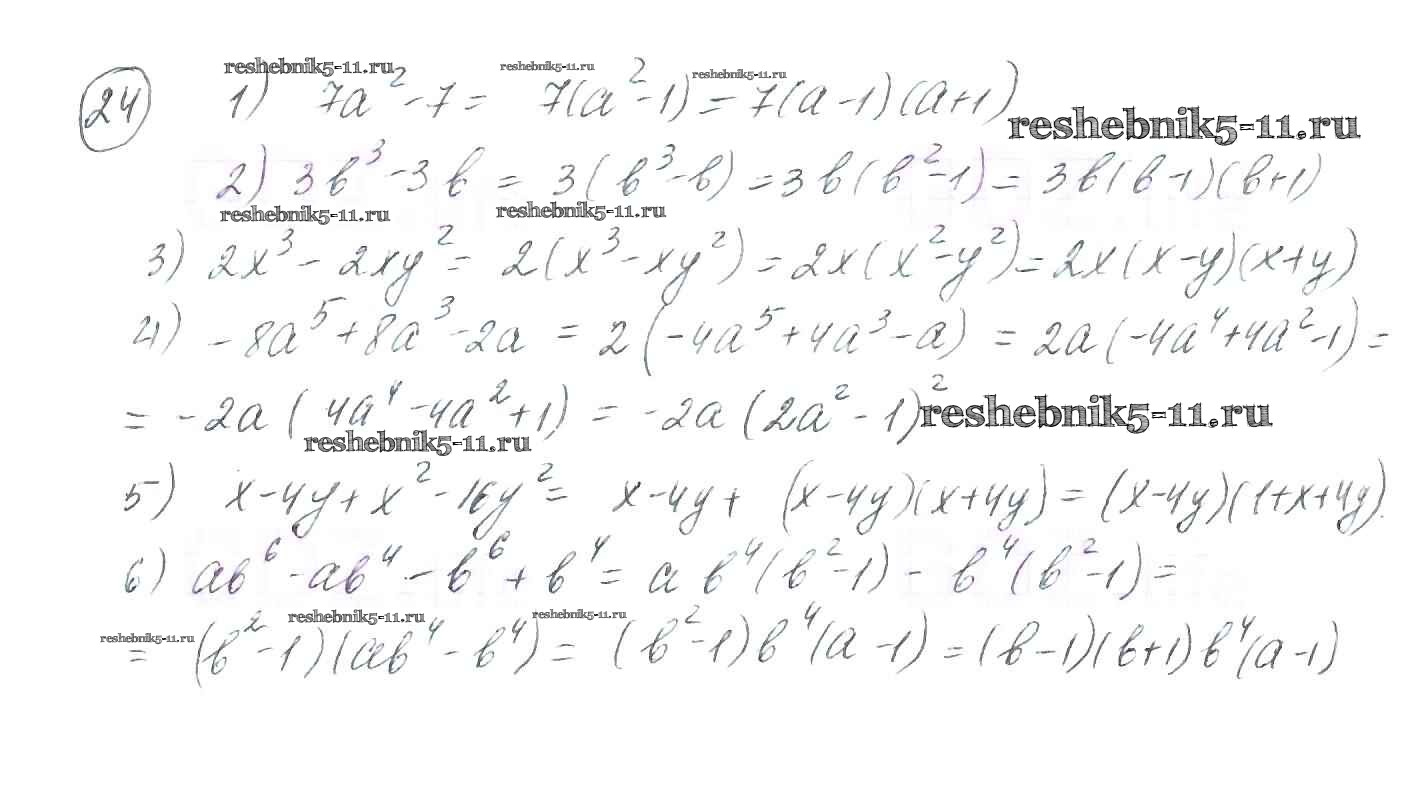 reshebnik5-11.ru reshebnik5-11.ru reshebnik5-11.ru
24 1) 7a² - 7 = 7(a² - 1) = 7(a - 1)(a + 1)
reshebnik5-11.ru
2) 3b³ - 3b = 3(b³ - b) = 3b(b² - 1) = 3b(b - 1)(b + 1)
reshebnik5-11.ru reshebnik5-11.ru
3) 2x³ - 2xy² = 2(x³ - xy²) = 2x(x² - y²) = 2x(x - y)(x + y)
4) - 8a⁵ + 8a³ - 2a = 2(-4a⁵ + 4a³ - a) = 2a(-4a⁴ + 4a² - 1) =
= -2a(4a⁴ - 4a² + 1) = -2a(2a² - 1)² reshebnik5-11.ru
reshebnik5-11.ru
5) x - 4y + x² - 16y² = x - 4y + (x - 4y)(x + 4y) = (x - 4y)(1 + x + 4y).
6) ab⁶ - ab⁴ - b⁶ + b⁴ = a b⁴(b² - 1) - b⁴(b² - 1) =
reshebnik5-11.ru reshebnik5-11.ru reshebnik5-11.ru
= (b² - 1)(ab⁴ - b⁴) = (b² - 1)b⁴(a - 1) = (b - 1)(b + 1)b⁴(a - 1)